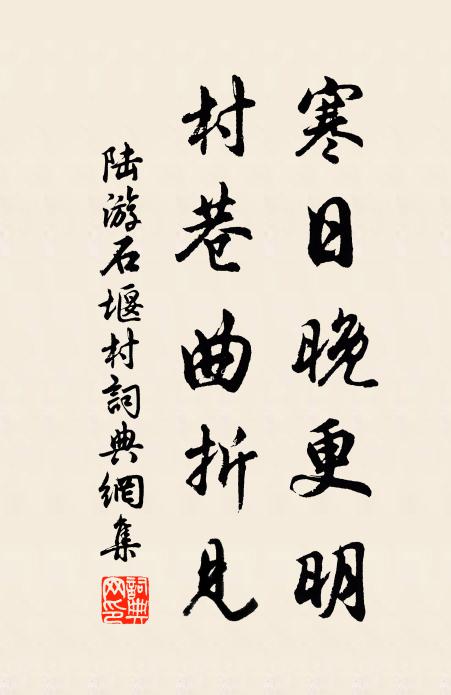 寒日晚更明
村巷曲折見
陆游石堰村詞典網集
詞典網印